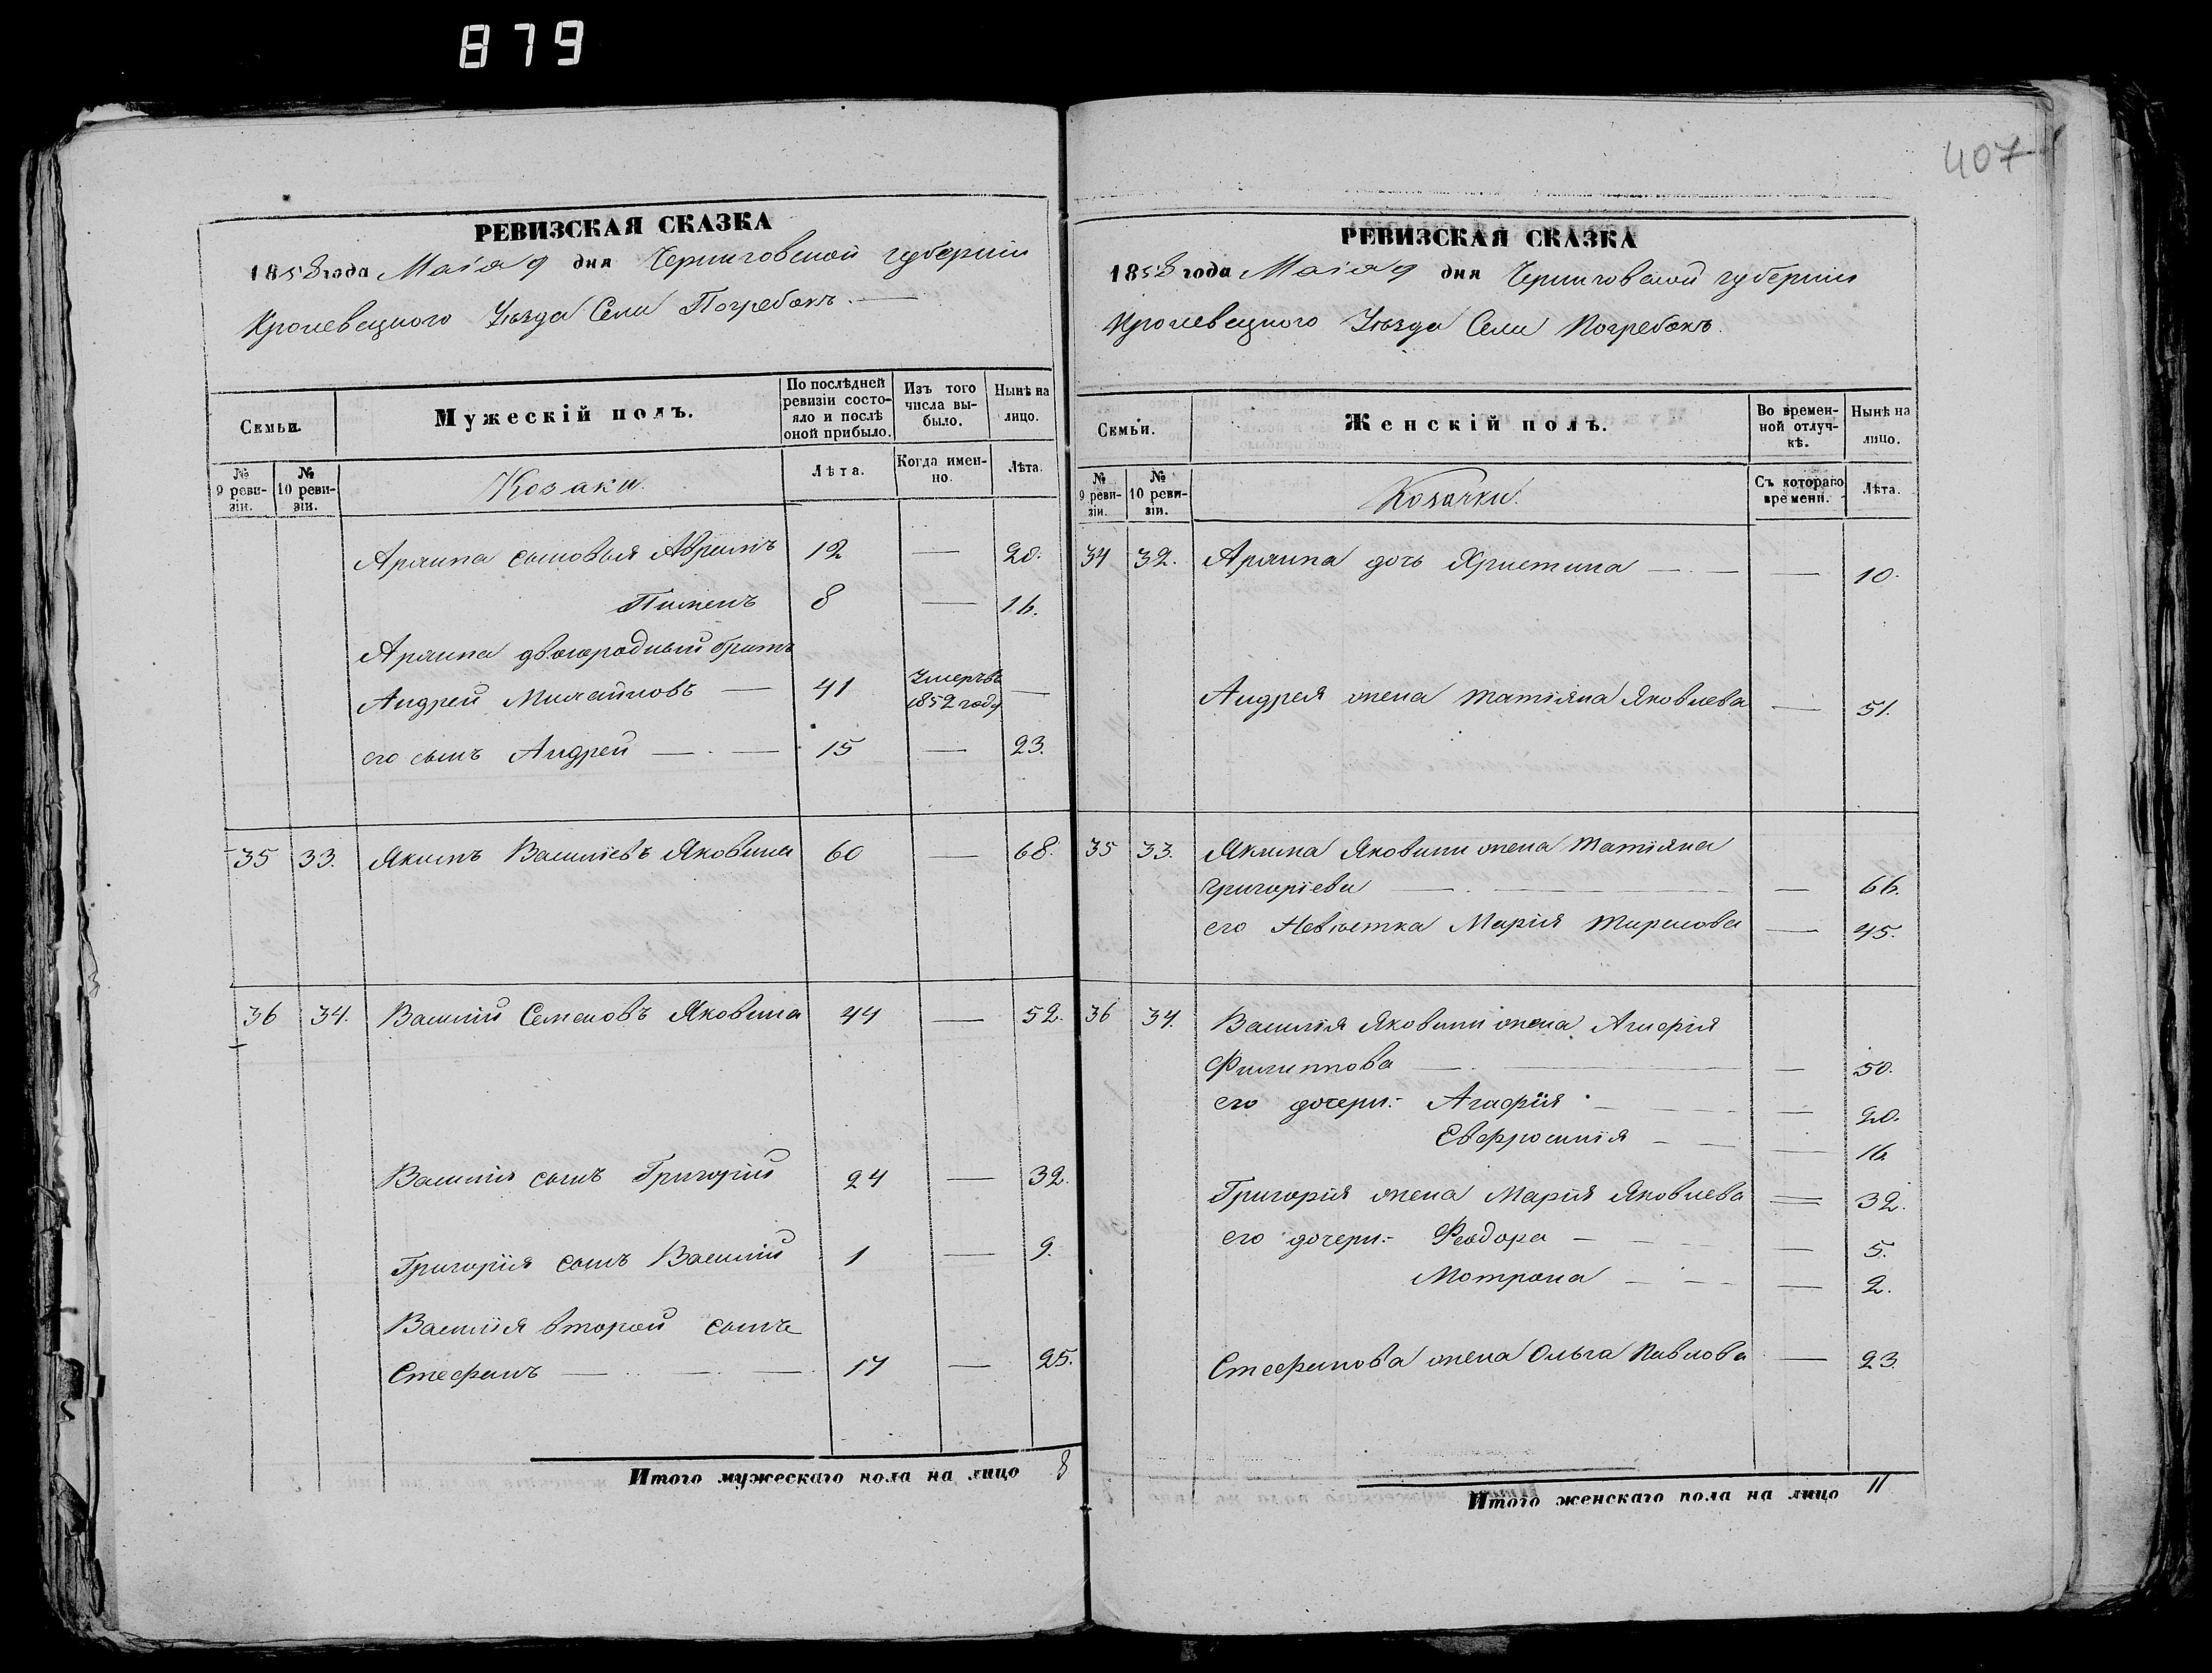 879
407
РЕВИЗСКАЯ СКАЗКА
1858 года Маія 9 дня Черниговской губерніи
Кролевецкого Уѣзда Села Погребокъ.
Семьи.
Мужескій полъ.
По послѣдней ревизіи состояло и послѣ оной прибыло.
Изъ того числа выбыло.
Нынѣ на лицо.
№ 9 ревизіи.
№ 10 ревизіи.
Козаки.
Лѣта.
Когда именно.
Лѣта.
Архипа сыновья Абрамъ 12 — 20.
Пименъ 8 — 16.
Архипа двоюродный братъ
Андрей Михайловъ — 41 Умеръ въ 1852 году —
его сынъ Андрей — 15 — 23.
35 33. Якимъ Васильевъ Яковина 60 — 68.
36 34. Василій Семеновъ Яковина 44 — 52.
Василія сынъ Григорій 24 — 32.
Григорія сынъ Василій 1 — 9.
Василія второй сынъ
Стефанъ — 17 — 25.
Итого мужескаго пола на лицо 8
РЕВИЗСКАЯ СКАЗКА
1858 года Маія 9 дня Черниговской губерніи
Кролевецкого Уѣзда Села Погребокъ.
Семьи.
Женскій полъ.
Во временной отлучкѣ.
Нынѣ на лицо.
№ 9 ревизіи.
№ 10 ревизіи.
Козачки.
Съ котораго времени.
Лѣта.
34 32. Архипа дочь Христина — — 10.
Андрея жена Татіяна Яковлева — 51.
35 33. Якима Яковини жена Татіяна
Григоріева — — 66.
его Невѣстка Марія — 45.
36 34. Василія Яковини жена Агафія
Филиппова — — 50.
его дочери:- Агафія — — 20.
Евфросинія — — 16
Григорія жена Марія Яковлева — 32.
его дочери:- Феодора — — 5.
Мотрона — — 2.
Стефанова жена Ольга Павлова — 23.
Итого женскаго пола на лицо 11